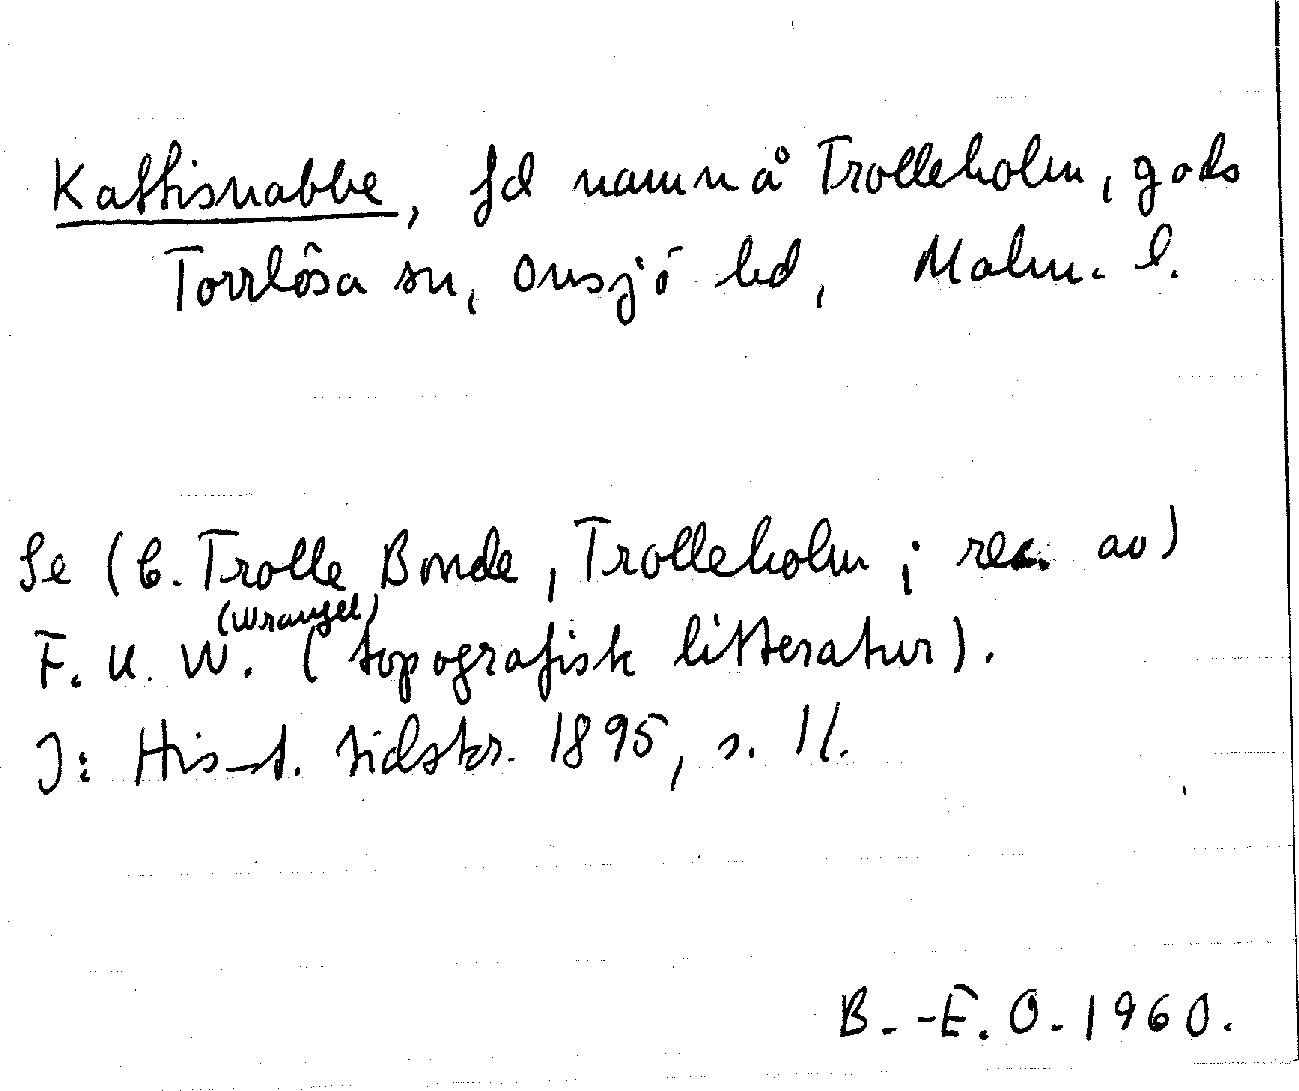 Kattisnabbe, fd namn å Trolleholm, gods
Torrlösa sn, Onsjö hd, Malm. l.
Se (C. Trolle Bonde, Trolleholm ; rec. av)
(Wrangel)
F. U. W. (topografisk litteratur).
I: Hist. tidskr. 1895, s. 11.
B.-E. O. 1960.